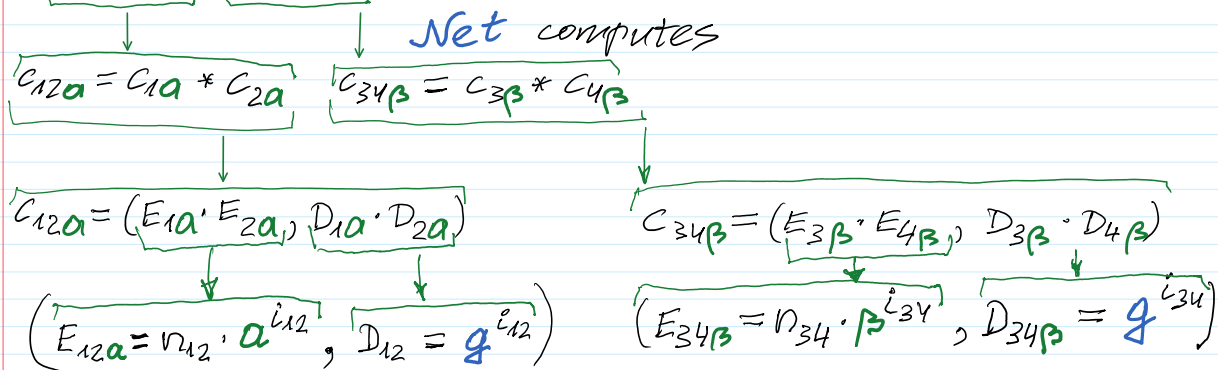 Net computes
c₁₂ₐ = c₁ₐ * c₂ₐ c₃₄ᵦ = c₃ᵦ * c₄ᵦ
c₁₂ₐ = (E₁ₐ · E₂ₐ, D₁ₐ · D₂ₐ) c₃₄ᵦ = (E₃ᵦ · E₄ᵦ, D₃ᵦ · D₄ᵦ)
(E₁₂ₐ = n₁₂ · a^i₁₂, D₁₂ = g^i₁₂) (E₃₄ᵦ = n₃₄ · β^i₃₄, D₃₄ᵦ = g^i₃₄)